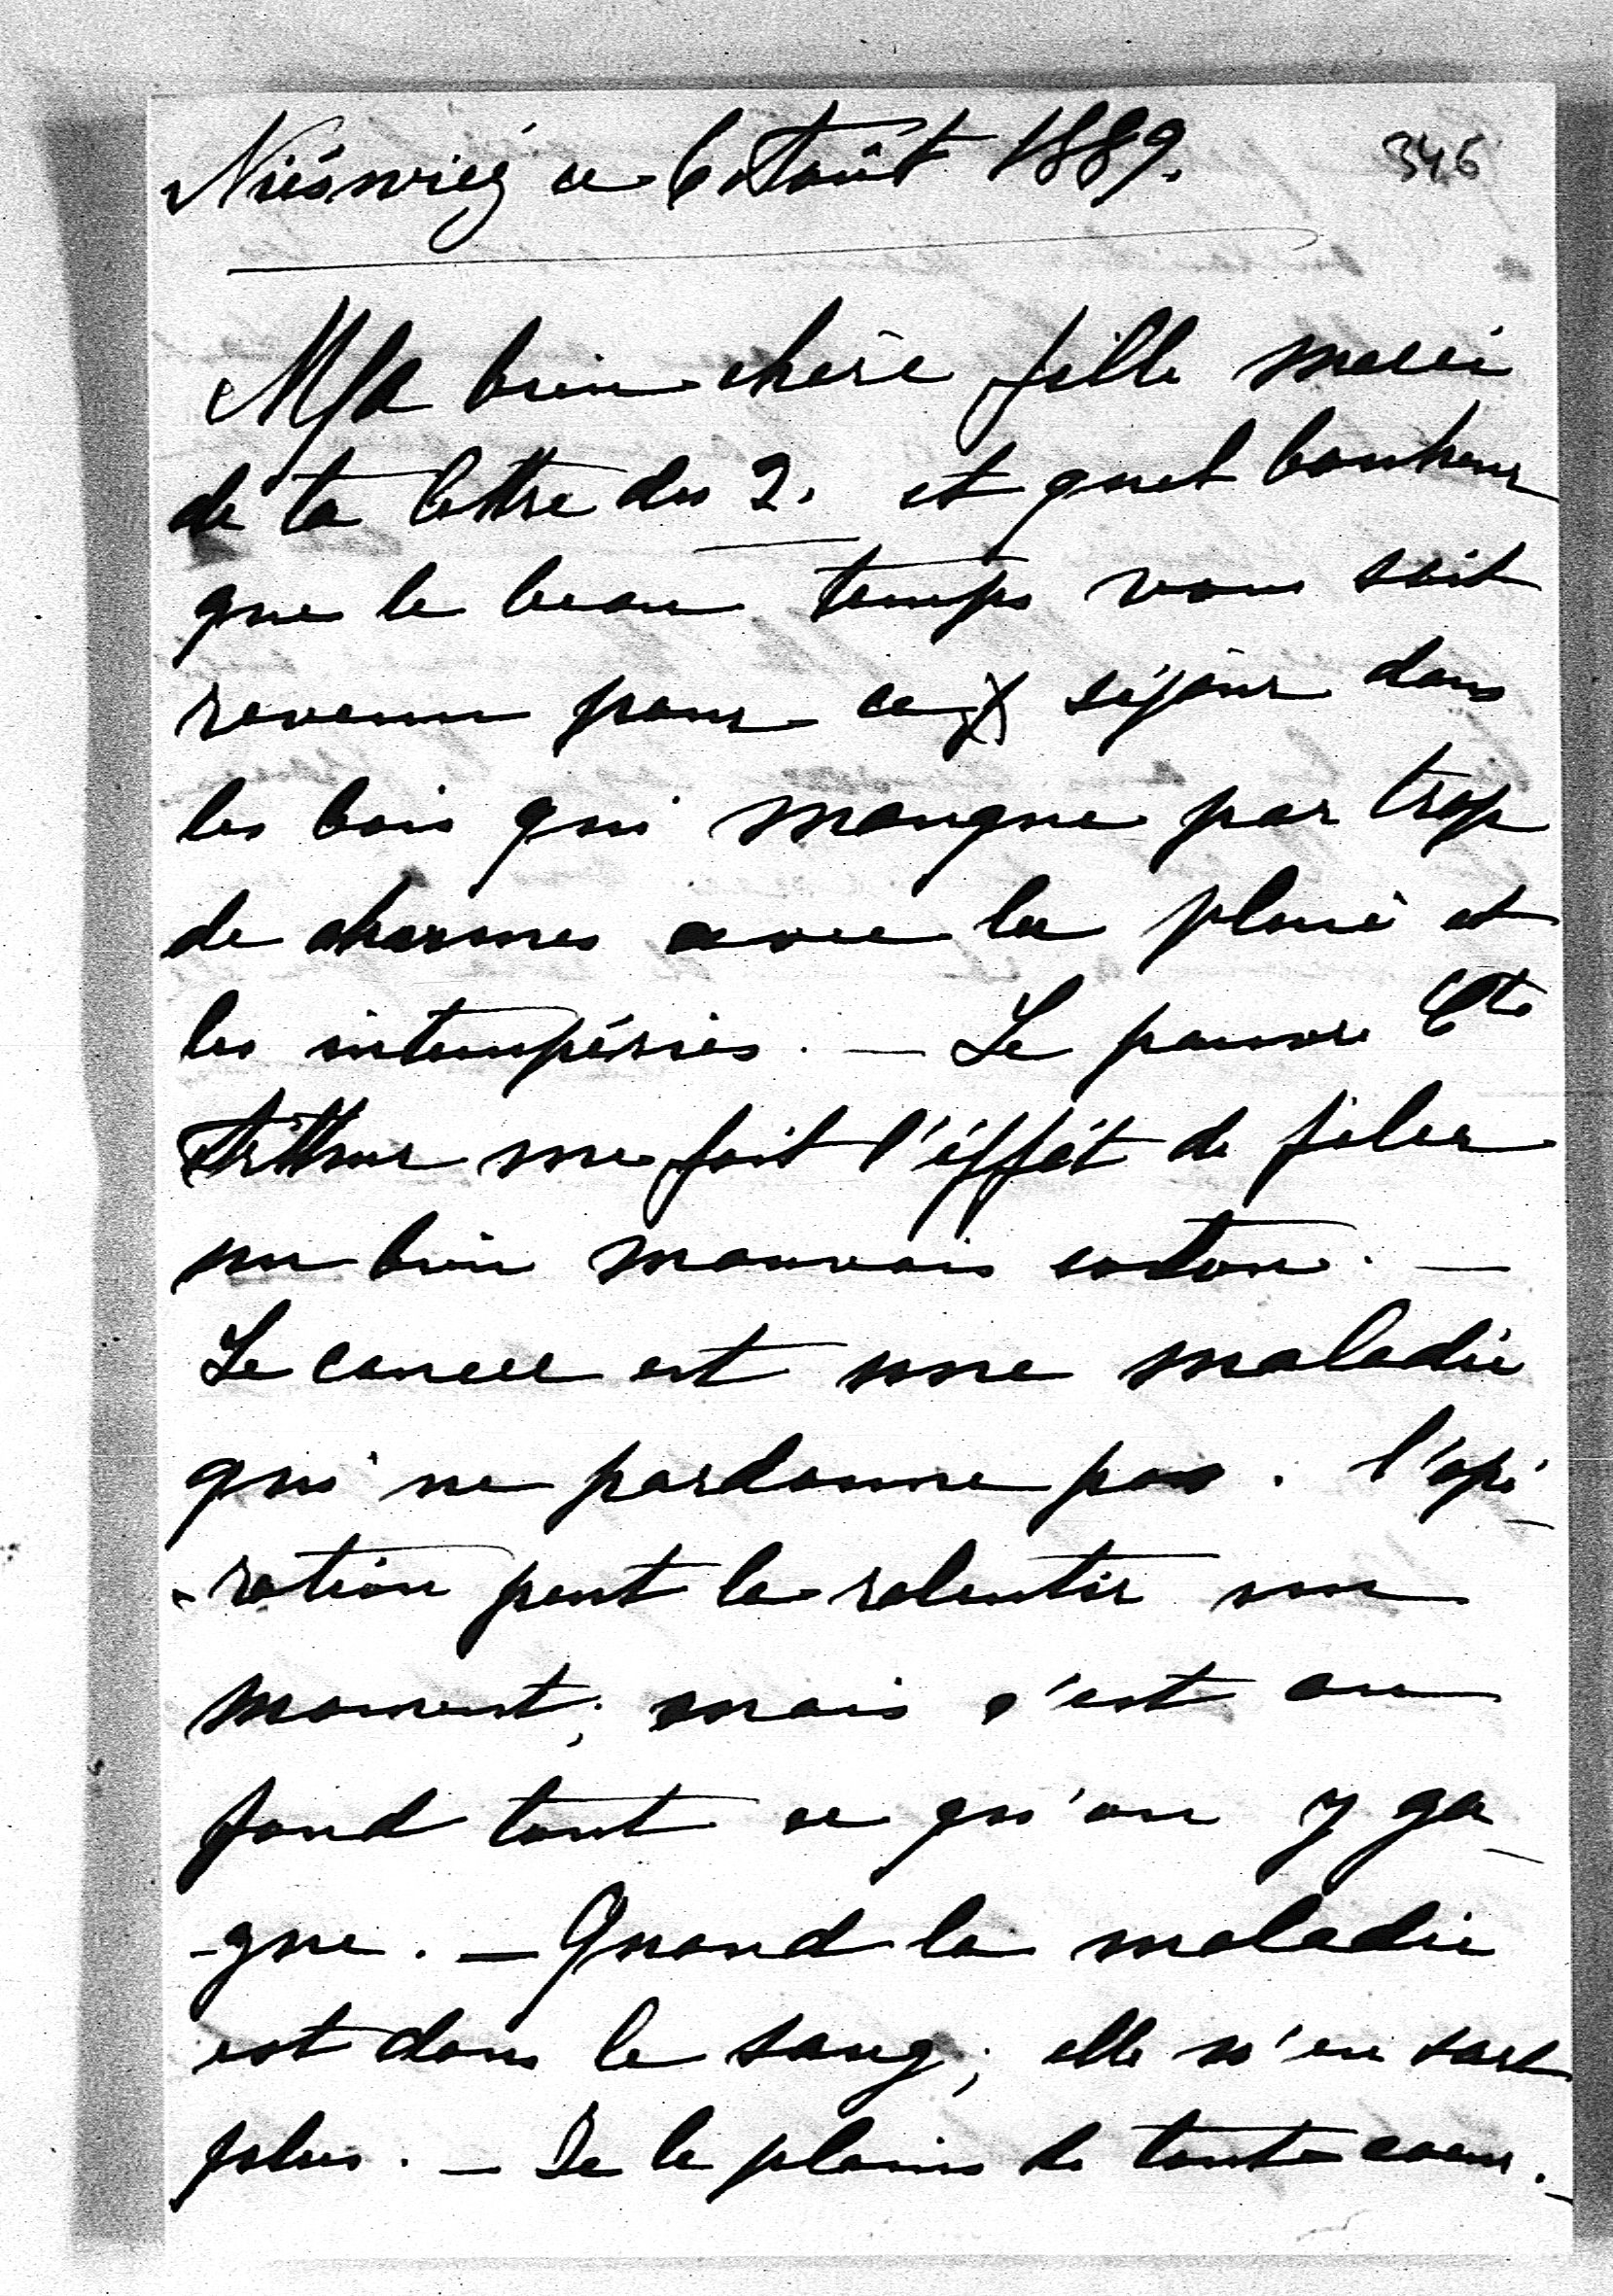 Nieświez ce 6 Août 1889. 346
Ma bien chère fille merci
de ta lettre du 2. et quel bonheur
que le beau temps vous soit
revenu pour ce séjour dans
les bois qui manque par trop
de charmes avec la pluie et
les intempéries. — Le pauvre Cte
Arthur me fait l'éffét de filer
un bien mauvais coton. —
Le cancer est une maladie
qui ne pardonne pas. l'opé-
-ration peut la ralentir un
moment; mais c'est au
fond tout ce qu'on y ga-
-gne. — Quand la maladie
est dans le sang; elle n'en sort
plus. — Je le plains de tout coeur. —